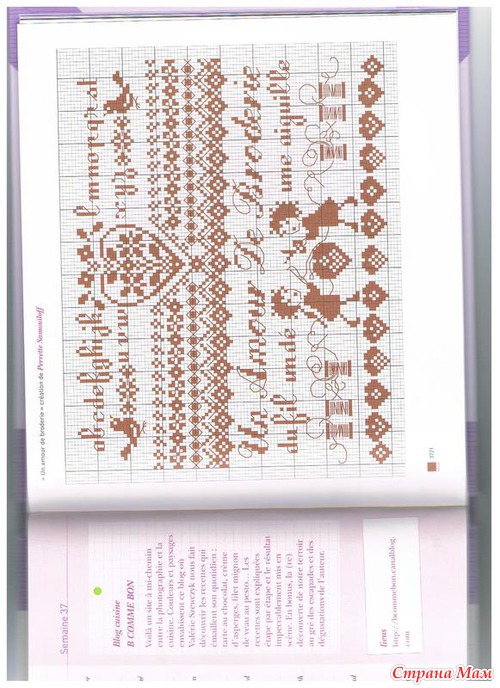 « Un amour de broderie » création de Perrette Samouiloff
abcdefghijk lmnopqrst
uvw xyz
Un Amour De Broderie
du fil un dé une aiguille
3771
Semaine 37
Blog cuisine
B COMME BON
Voilà un site à mi-chemin
entre la photographie et la
cuisine. Couleurs et paysages
envahissent ce blog où
Valérie Szewczyk nous fait
découvrir les recettes qui
émaillent son quotidien :
tarte au chocolat, crème
d'asperges, filet mignon
de veau au pesto… Les
recettes sont expliquées
étape par étape et le résultat
impeccablement mis en
scène. En bonus, la (re)
découverte de notre terroir
au gré des escapades et des
dégustations de l'auteur.
liens
http://bcommebon.canalblog.
com
Страна Мам